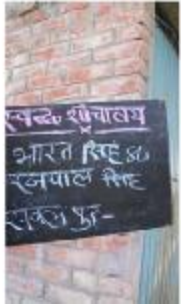 स्वच्छ शौचालय
भारत सिंह S/o
रजपाल सिंह